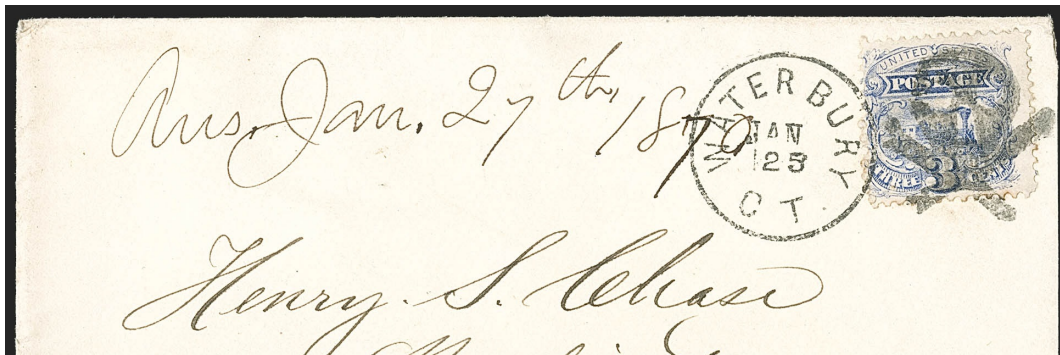 Ans. Jan. 27th, 1870
WATERBURY
JAN
25
CT.
UNITED STATES
POSTAGE
THREE 3 CENTS
Henry. S. Chase